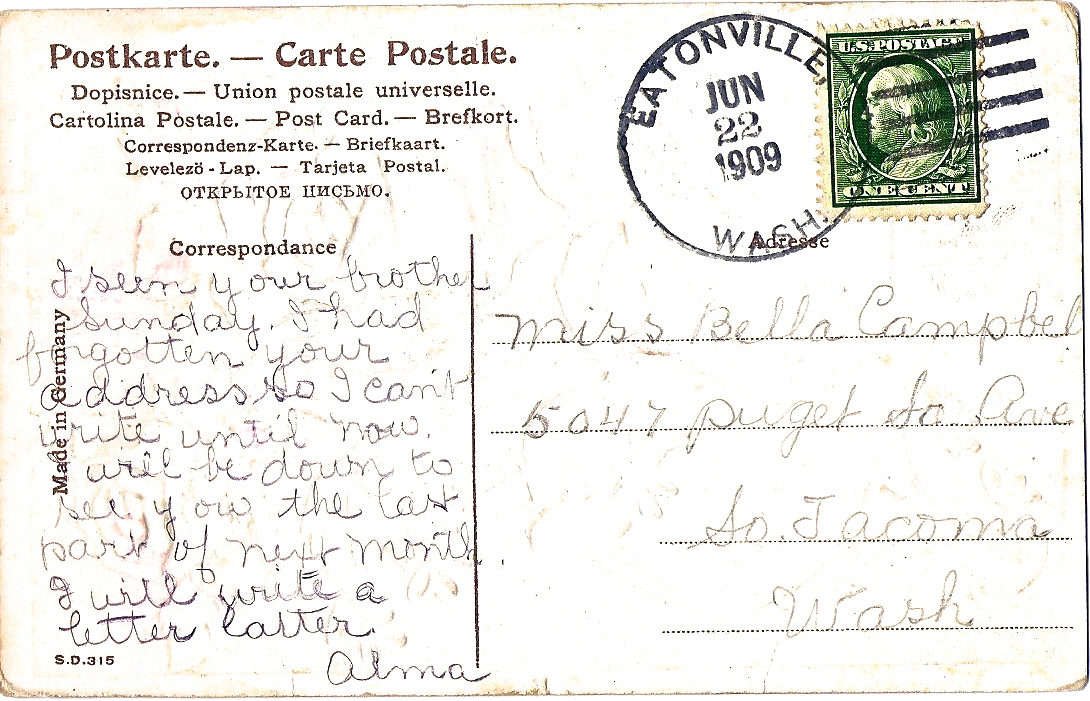 Postkarte. — Carte Postale.
Dopisnice. — Union postale universelle.
Cartolina Postale. — Post Card. — Brefkort.
Correspondenz-Karte. — Briefkaart.
Levelezö-Lap. — Tarjeta Postal.
ОТКРЫТОЕ ПИСЬМО.
EATONVILLE,
JUN
22
1909
WASH.
U.S. POSTAGE
ONE CENT
Correspondance
I seen your brother
Sunday. I had
forgotten your
address so I can't
write until now.
will be down to
see you the last
part of next month.
I will write a
letter latter.
Alma
Made in Germany
S.D.315
Adresse
Miss Bella Campbel
5047 Puget So Ave
So. Tacoma
Wash